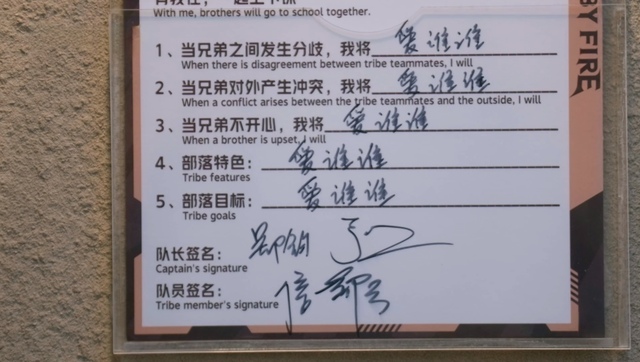 With me, brothers will go to school together.
1、当兄弟之间发生分歧，我将 爱谁谁
When there is disagreement between tribe teammates, I will
2、当兄弟对外产生冲突，我将 爱谁谁
When a conflict arises between the tribe teammates and the outside, I will
3、当兄弟不开心，我将 爱谁谁
When a brother is upset, I will
4、部落特色： 爱谁谁
Tribe features
5、部落目标： 爱谁谁
Tribe goals
队长签名：
Captain's signature
队员签名：
Tribe member's signature
BY FIRE